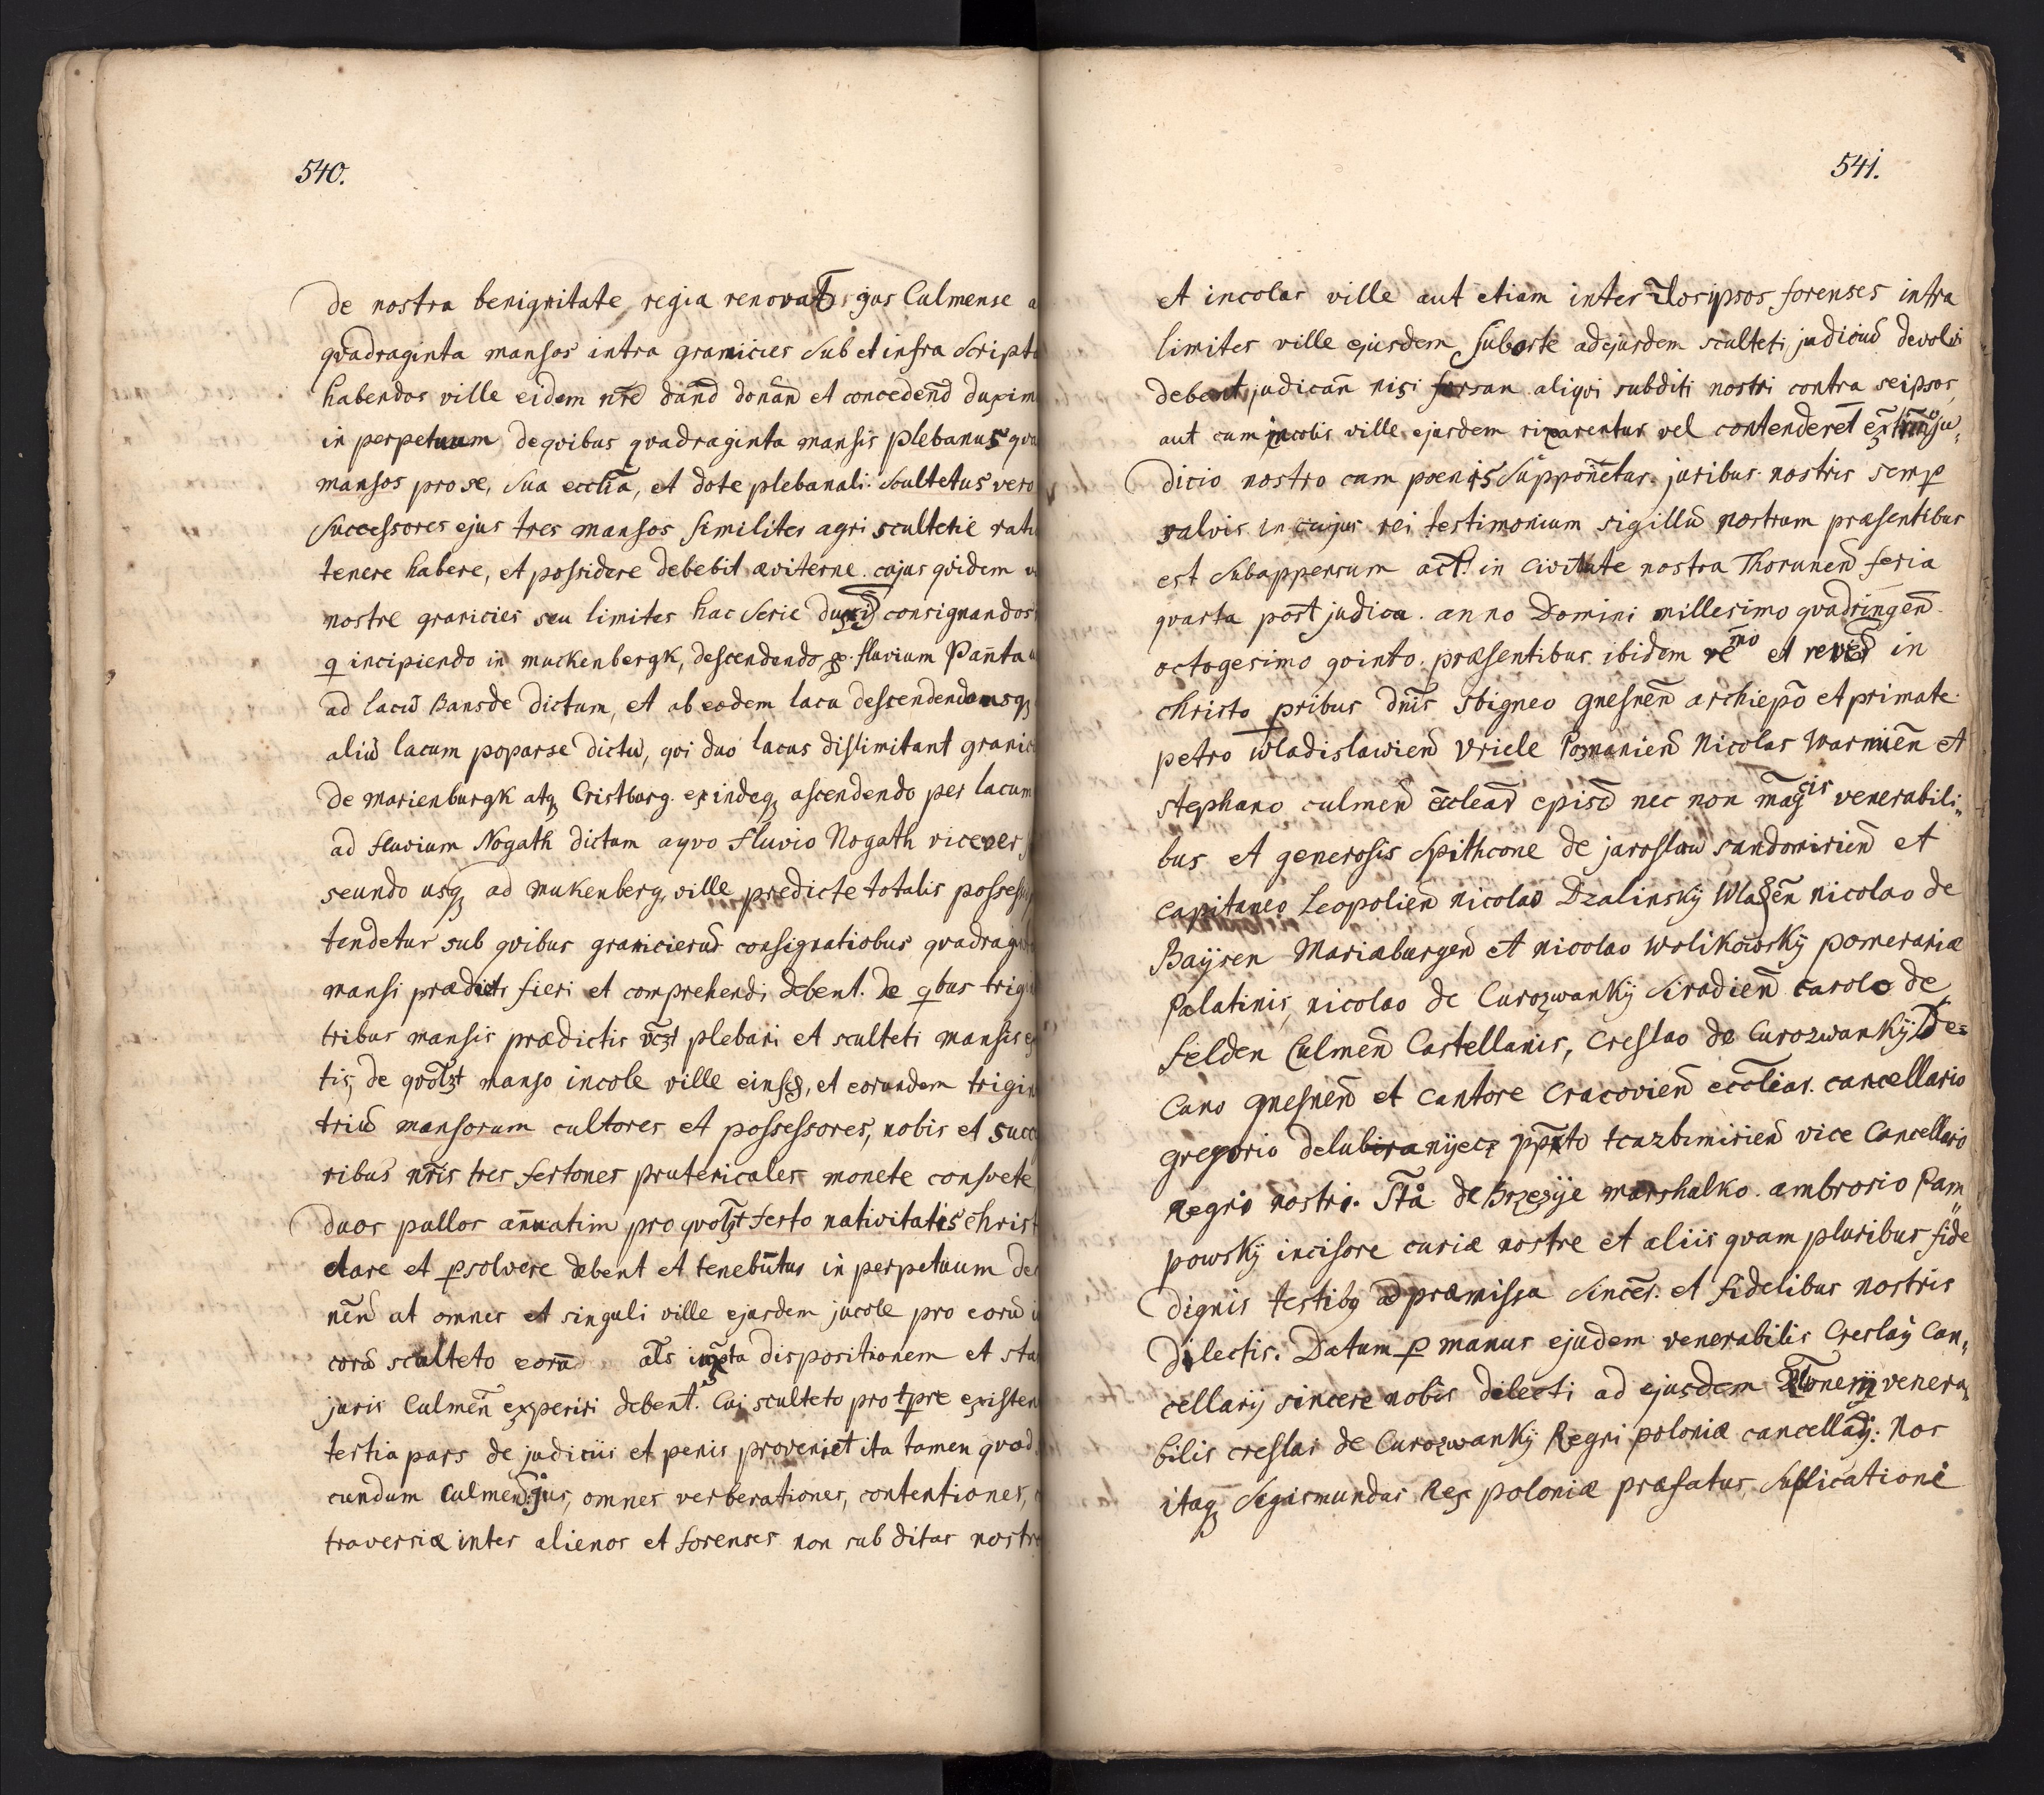 540.
de nostra benignitate regia renovat jus Culmense a
qvadraginta mansos intra granicies sub et infra script
habendos ville eidem nr̄e dand̄ donan̄d et concedend̄ duxim
in perpetuum deqvibus qvadraginta mansis plebanus qva
mansos pro se, sua ecclīa, et dote plebanali. Scultetus vero
Successores ejus tres mansos similiter agri scultetie rati
tenere habere, et possidere debebit æviterne. cujus qvidem v
nostre granicies seu limites hac serie consignandos
q incipiendo in muckenbergk, descendendo p. fluvium Pan̄ta u
ad lacū Bansde dictum, et ab eodem lacu descendendo usqȝ
aliū lacum poparse dictū, qvi duo lacus dislimitant granic
de Marienburgk atqȝ Cristburg. exindeqȝ ascendendo per lacum
ad fluvium Nogath dictum aqvo fluvio Nogath vicevers
seundo usqȝ ad Mukenberg, ville predicte totalis possess
tendetur sub qvibus granicierū consignatiobus qvadragin
mansi prædicti fieri et comprehendi debent. de qbus trigi
tribus mansis prædictis vc̄ȝt plebani et sculteti mansis ex
tis, de qvōlȝt manso incole ville, et eorundem trigin
triū mansorum cultores et possessores, nobis et succ
ribus nr̄is tres fertones prutenicales monete consvete
duos pullos an̄uatim pro qvōlȝt festo nativitatis christ
dare et psolvere debent et tenebūtur in perpetuum de
nēn ut omnes et singuli ville ejusdem jncole pro eorū i
corā sculteto als juxta dispositionem et sta
juris Culmen̄ experiri debent. Cui sculteto pro tpre existen
tertia pars de judiciis et penis proveniet ita tamen qvod
cundum Culmen̄ jus, omnes verberationes, contentiones, c
traversiæ inter alienos et forenses non subditas nostr
541.
et incolas ville aut etiam inter ilosipsos forenses infra
limites ville ejusdem suborte ad ejusdem sculteti judiciū devolvi
debent judican̄ nisi forsan aliqvi subditi nostri contra seipsos,
aut cum jncolis ville ejusdem rixarentur vel contenderet ju„
dicio nostro cum poenis suppon̄etur. juribus nostris semp
salvis. in cujus rei testimonium sigillū nostrum præsentibus
est subappensum act. in civitate nostra Thorunen̄ feria
qvarta post judica. anno Domini millesimo qvadringen̄.
octogesimo qvinto. præsentibus ibidem rēmo et reved̄ in
christo pribus dnīs Sbigneo gnesnen̄ archiepō et primate.
petro Wladislawien̄ Vriele Poznanien̄ Nicolas Warmien̄ et
stephano culmen̄ ecclear̄ episc̄ nec non māgcis venerabili„
bus et generosis Spithcone de jaroslaw sandomirien̄ et
capitaneo Leopolien̄ nicolao Dzalinskÿ Wladen̄ nicolao de
Baÿsen Mariæburgen̄ et nicolao wolikowskÿ pomeraniæ
Palatinis, nicolao de Curozwankÿ Siradien̄ carolo de
felden Culmen̄ Castellanis, Creslao de Curozwankÿ De=
cano gnesnen̄ et cantore cracovien̄ ecclīar. cancellario
gregorio delubiranÿecz tcuzbimirien̄ vice Cancellario
Regni nostri. Stā de Brzezÿe marshalko. ambrosio Pam„
powskÿ incisore curiæ nostre et aliis qvam pluribus fide
dignis testibȝ ad præmissa sincer̄. et fidelibus nostris
dilectis. Datum p manus ejudem venerabilis Creslaÿ Can„
cellarij sincere nobis dilecti ad ejusdem venera„
bilis creslai de Curozwankÿ Regni poloniæ cancellarÿ. Nos
itaqȝ Sigismundus Rex poloniæ præfatus, suplicatione